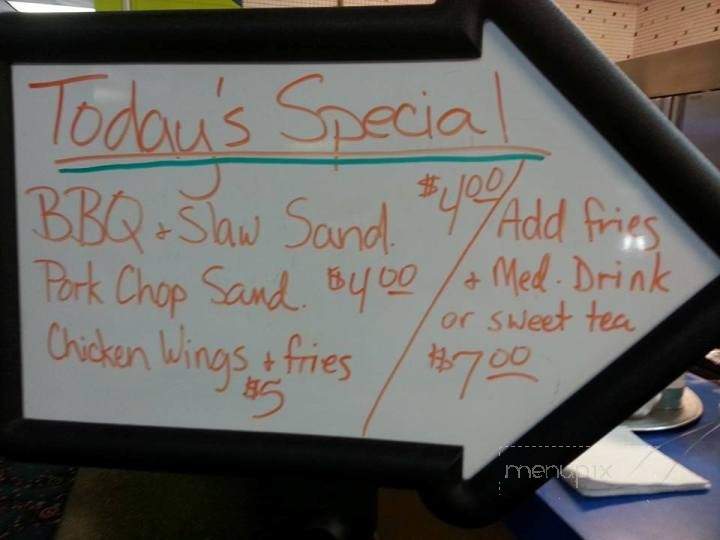 Today's Special
BBQ + Slaw Sand. $4.00
Pork Chop Sand. $4.00
Chicken Wings + fries
$5
Add fries
+ Med. Drink
or sweet tea
$7.00
menupix